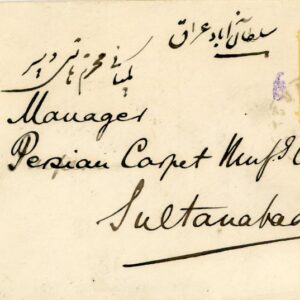 سلطان آباد عراق
کمپانی محترم
Manager
Persian Carpet Mnfg C
Sultanabad